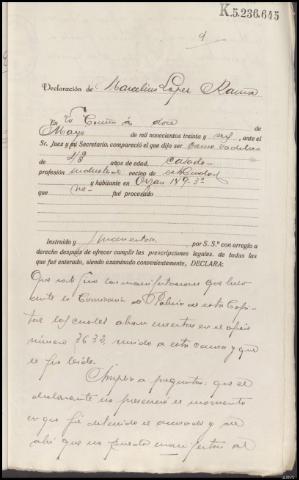 K.5.236.645
9
Declaración de Marcelino López Ramos
En La Coruña a doce de
Mayo de mil novecientos treinta y seis, ante el
Sr. Juez y mi Secretario, compareció el que dijo ser como
de 48 años de edad, casado
profesión industrial vecino de esta Ciudad
y habitante en Orzán 149-3º
que no fué procesado
Instruido y juramentado por S. S.ª con arreglo a
derecho después de ofrecer cumplir las prescripciones legales, de todas las
que fué enterado, siendo examinado convenientemente, DECLARA:
Que ratifica las manifestaciones que hizo
ante la Comisaría de Policía de esta Capi-
tal las cuales obran insertas en el oficio
número 3632 unido a esta causa y que
le fué leido.
A preguntas: que el
declarante no presenció el momento
en que fué detenido el acusado y de
ahí que no pueda manifestar si